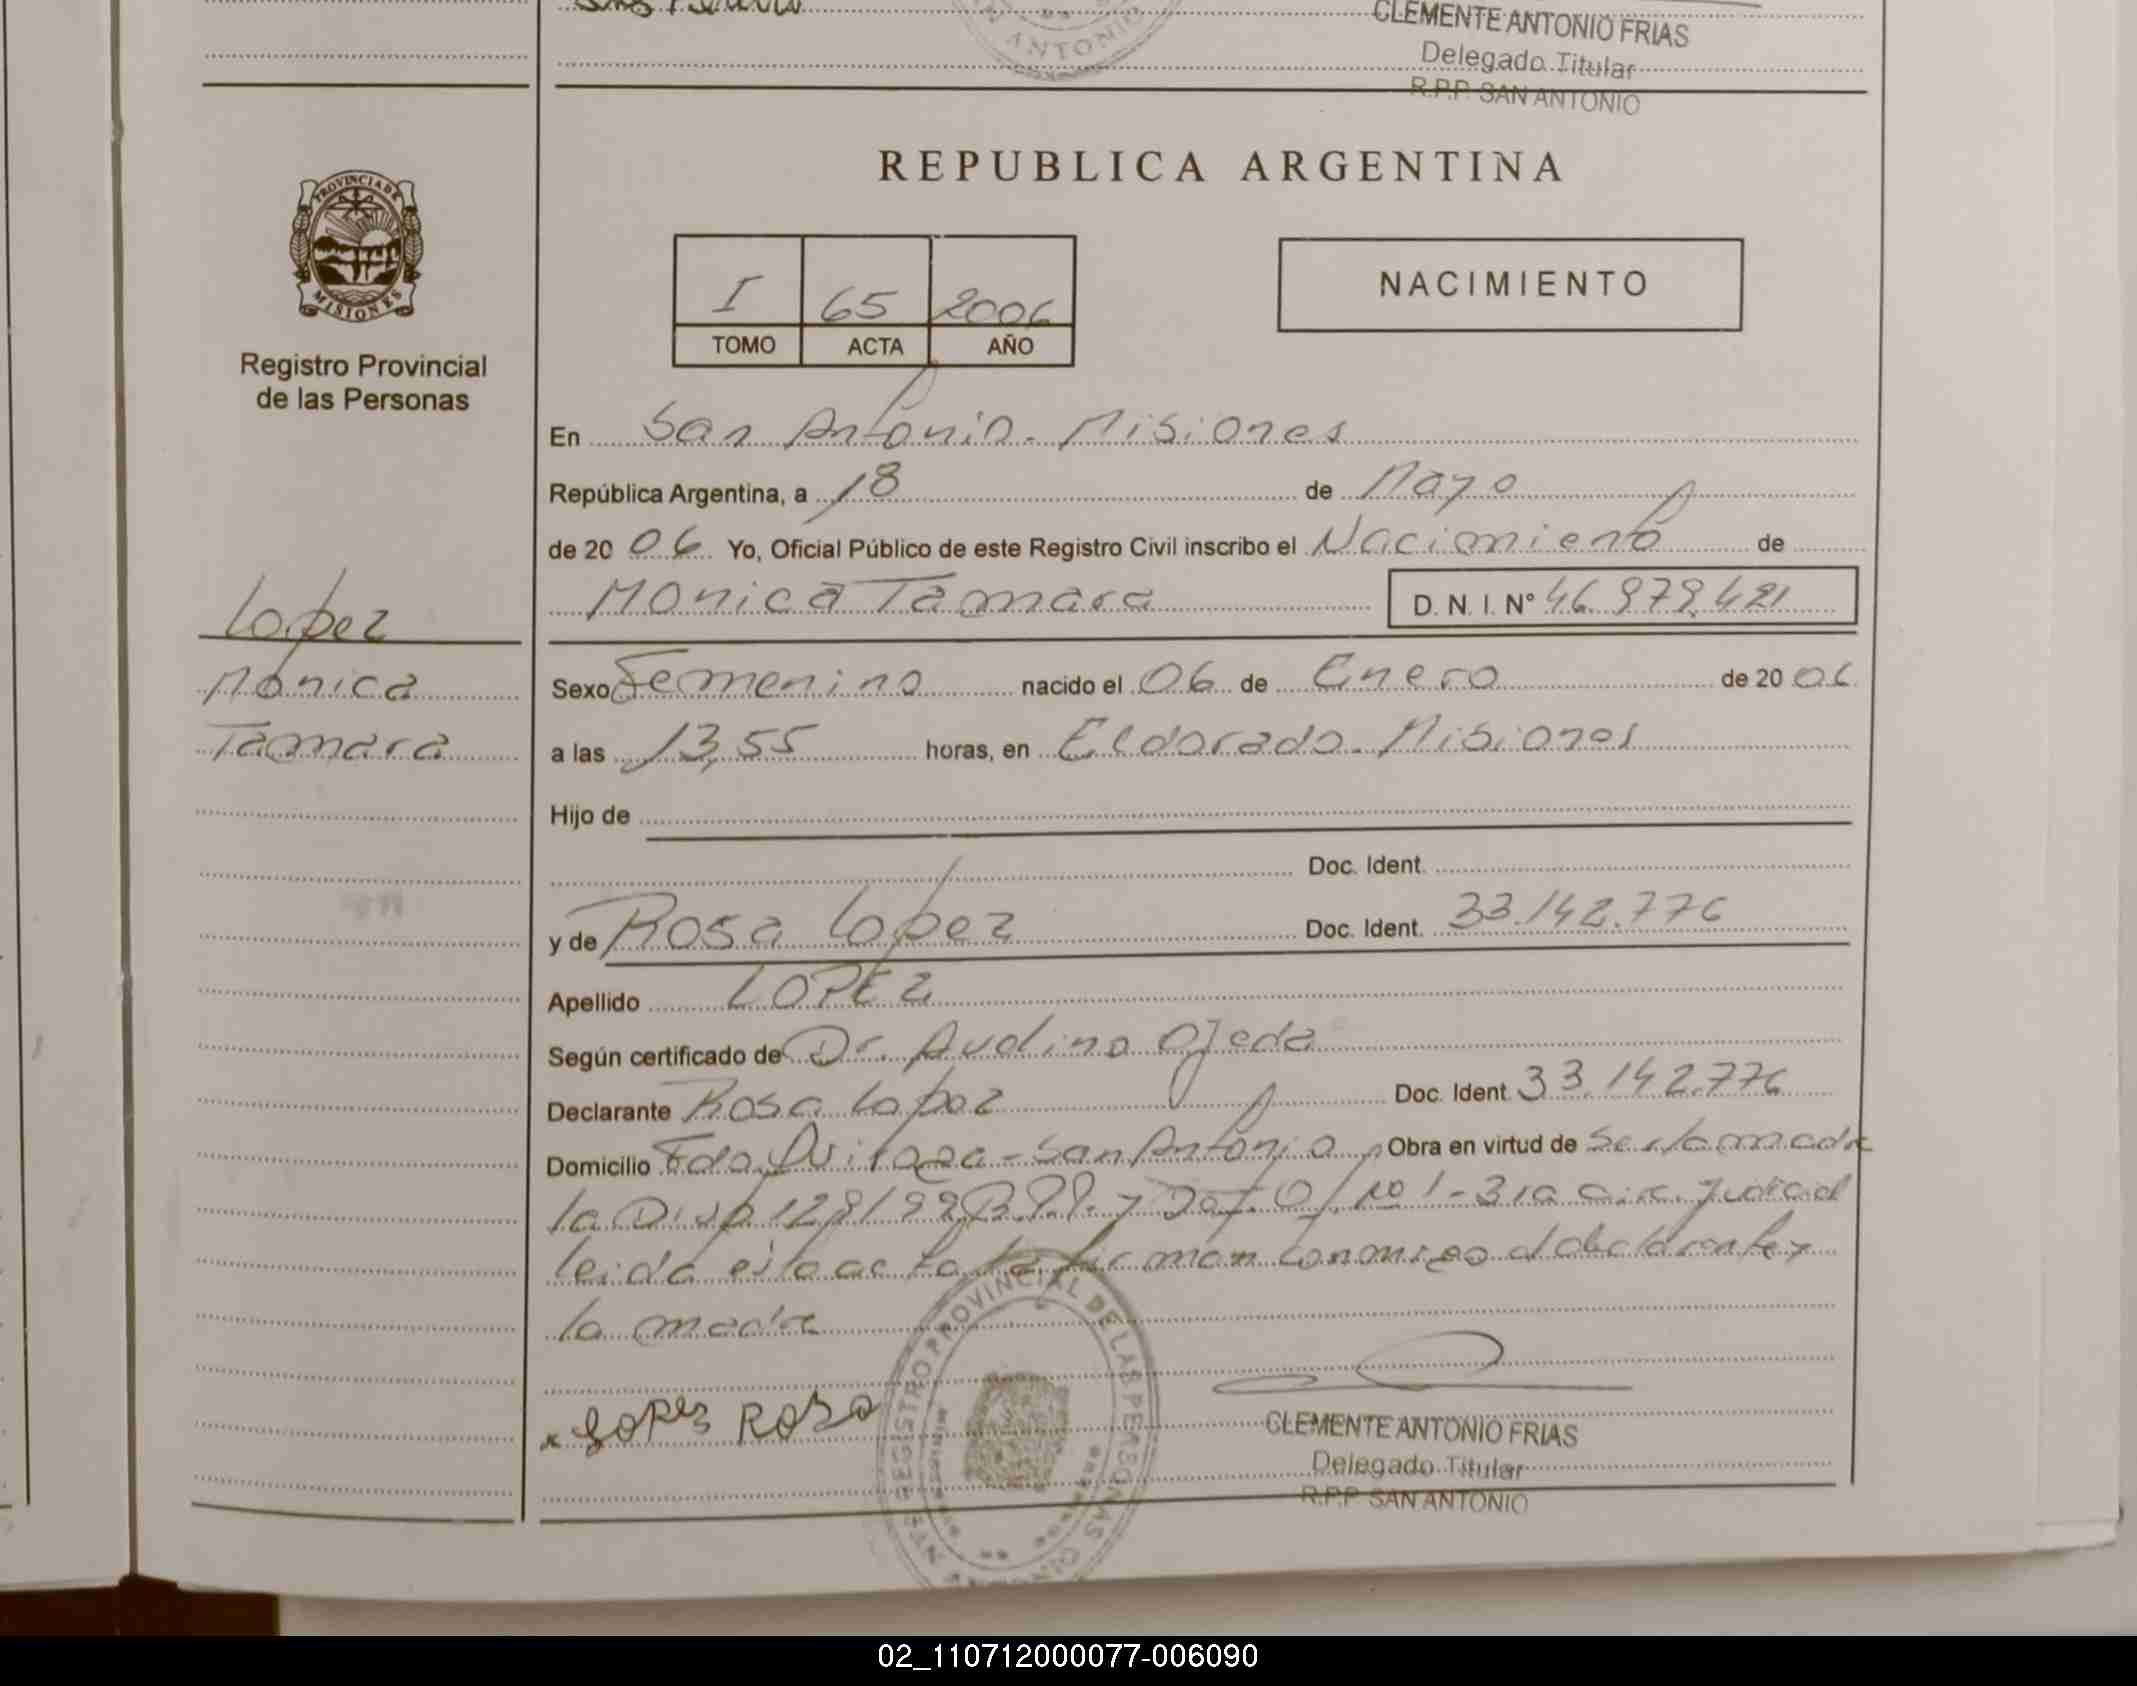 CLEMENTE ANTONIO FRIAS
Delegado Titular
R.P.P. SAN ANTONIO
SAN ANTONIO
PROVINCIA DE
MISIONES
Registro Provincial
de las Personas
REPUBLICA ARGENTINA
I 65 2006
TOMO ACTA AÑO
NACIMIENTO
En San Antonio - Misiones
República Argentina, a 18 de Mayo
de 20 06 Yo, Oficial Público de este Registro Civil inscribo el Nacimiento de
Monica Tamara D. N. I. N° 46.979.421
Lopez
Monica
Tamara
Sexo Femenino nacido el 06 de Enero de 20 06
a las 13,55 horas, en Eldorado - Misiones
Hijo de
Doc. Ident.
y de Rosa Lopez Doc. Ident. 33.142.776
Apellido LOPEZ
Según certificado de Dr. Audino Ojeda
Declarante Rosa Lopez Doc. Ident. 33.142.776
Domicilio San Antonio Obra en virtud de ser la madre
la Disp 128/99 R.P.P. y N° 1 - 3ra Circ. Judicial
leida esta acta la firman conmigo el declarante y
la madre
x Lopez Rosa
REGISTRO PROVINCIAL DE LAS PERSONAS
CLEMENTE ANTONIO FRIAS
Delegado Titular
R.P.P. SAN ANTONIO
02_110712000077-006090